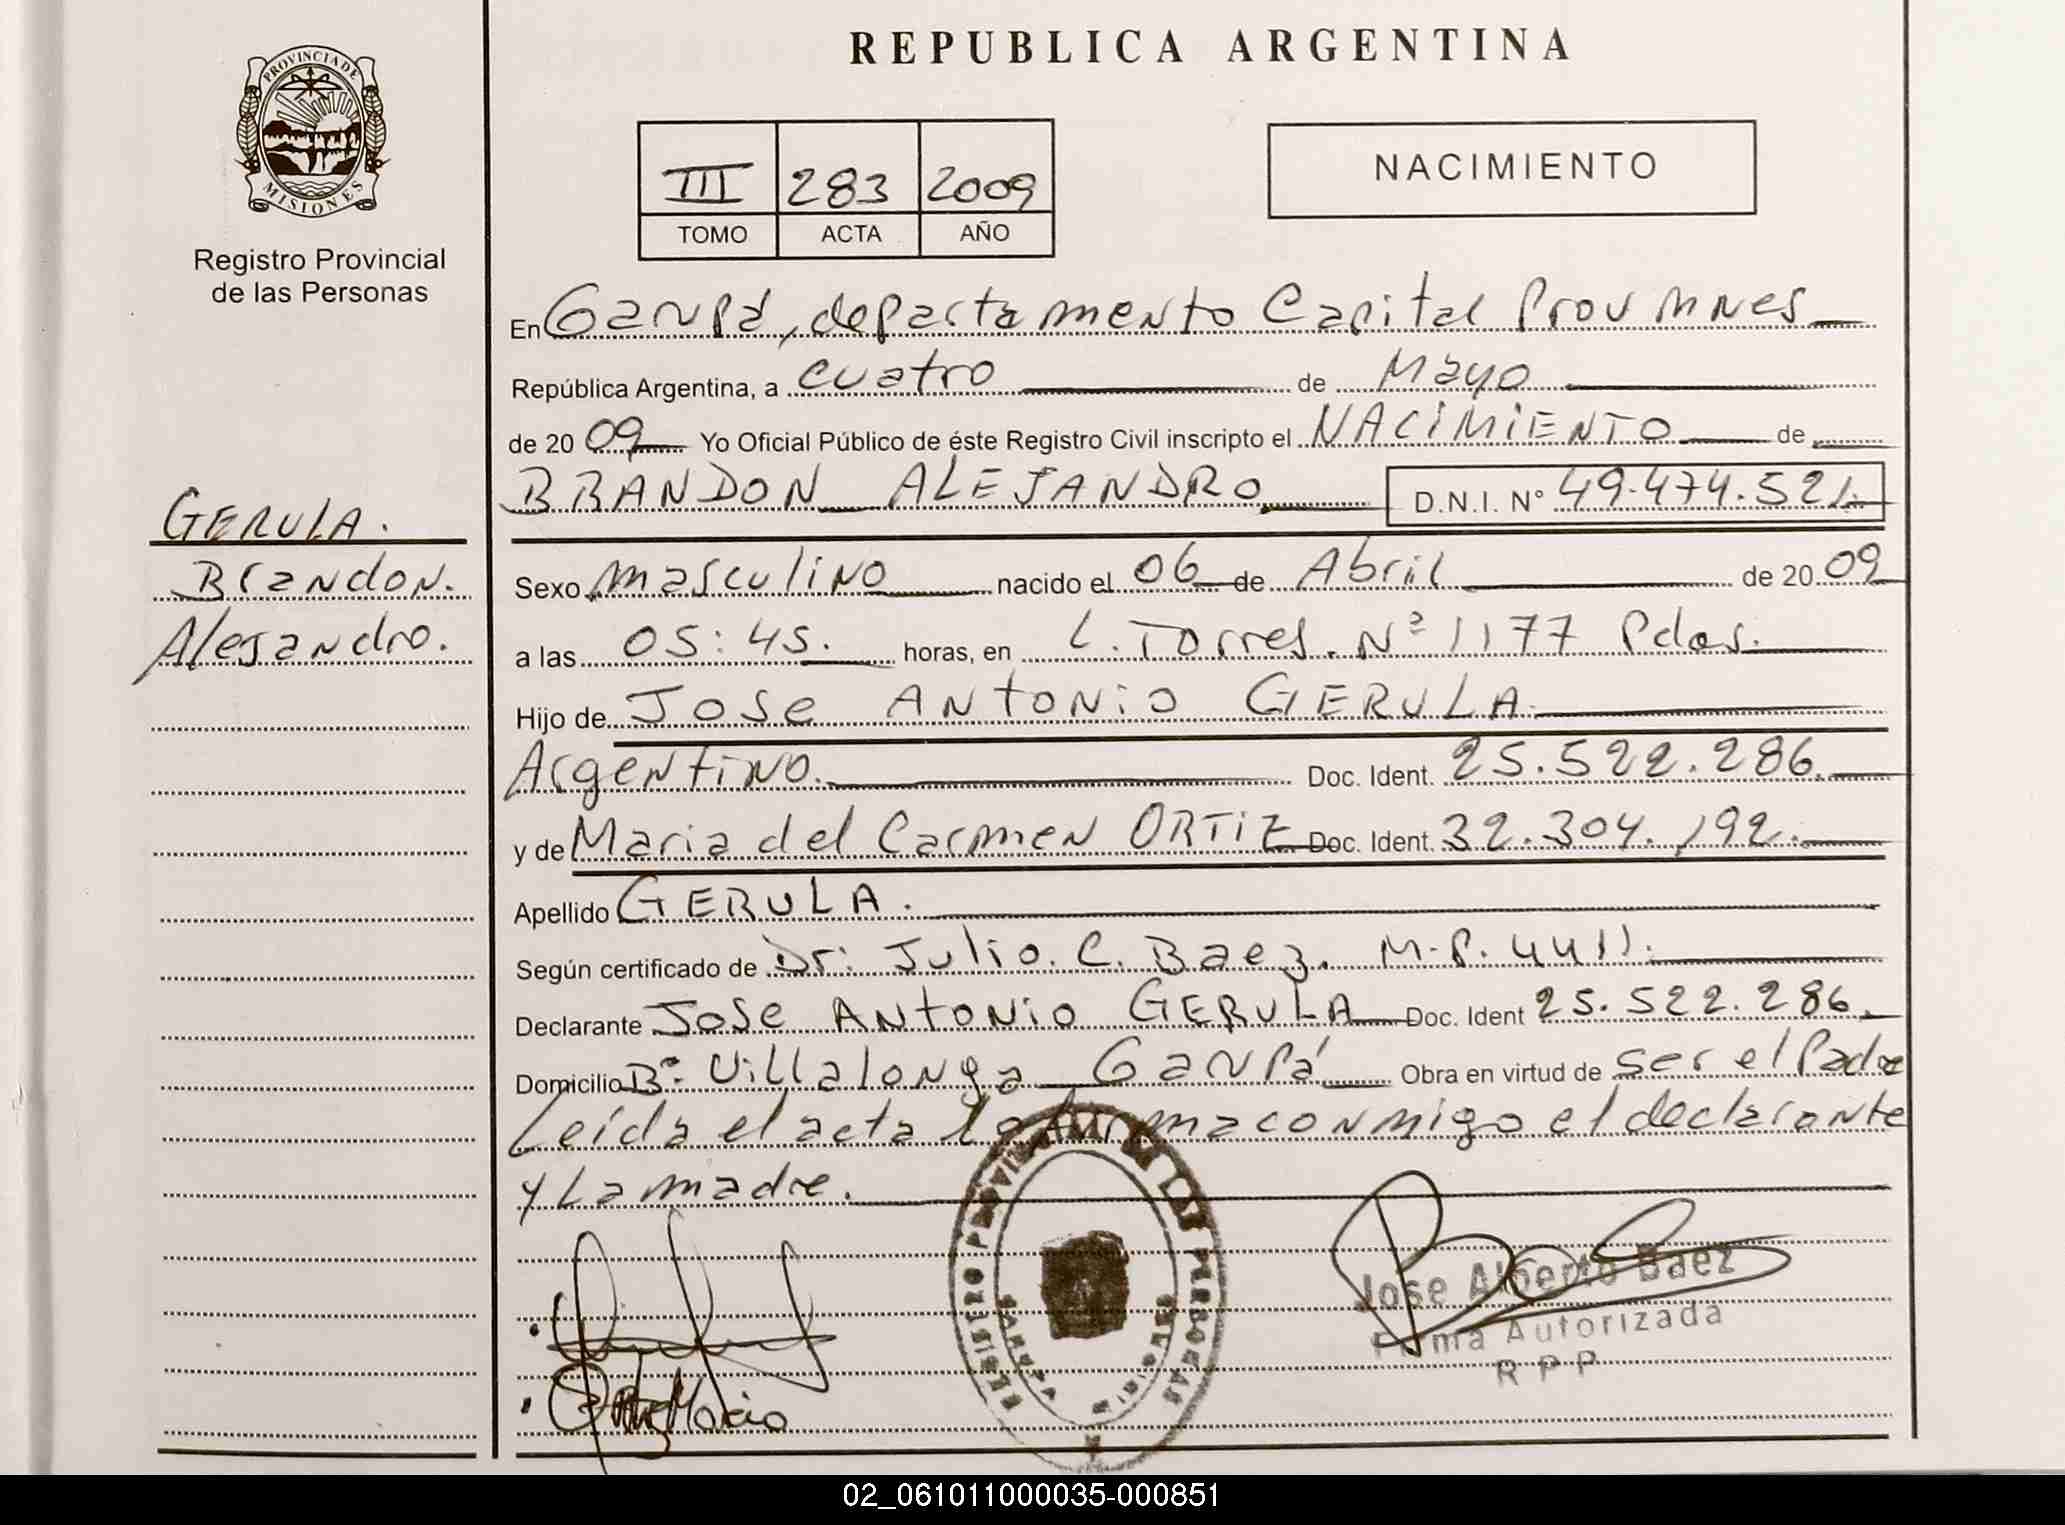 REPUBLICA ARGENTINA
PROVINCIA DE
MISIONES
Registro Provincial
de las Personas
III 283 2009
TOMO ACTA AÑO
NACIMIENTO
En Garupá, departamento Capital Prov Mnes
República Argentina, a cuatro de Mayo
de 2009 Yo Oficial Público de éste Registro Civil inscripto el NACIMIENTO de
BRANDON ALEJANDRO D.N.I. Nº 49.474.521.
GERULA.
Brandon.
Alejandro.
Sexo masculino nacido el 06 de Abril de 2009
a las 05:45. horas, en L. Torres. Nº 1177 Pdas.
Hijo de Jose ANTONiO GERULA.
Argentino. Doc. Ident. 25.522.286.
y de Maria del Carmen ORTiZ Doc. Ident. 32.304.192.
Apellido GERULA.
Según certificado de Dr: Julio. C. Baez. M.P. 4411.
Declarante Jose ANTONiO GERULA Doc. Ident 25.522.286.
Domicilio Bº. Villalonga Garupá Obra en virtud de ser el Padre
Leída el acta la firma conmigo el declarante
y La madre.
REGISTRO PROVINCIAL DE LAS PERSONAS
GARUPA
MISIONES
Jose Alberto Baez
Firma Autorizada
R P P
Ortiz Maria
02_061011000035-000851